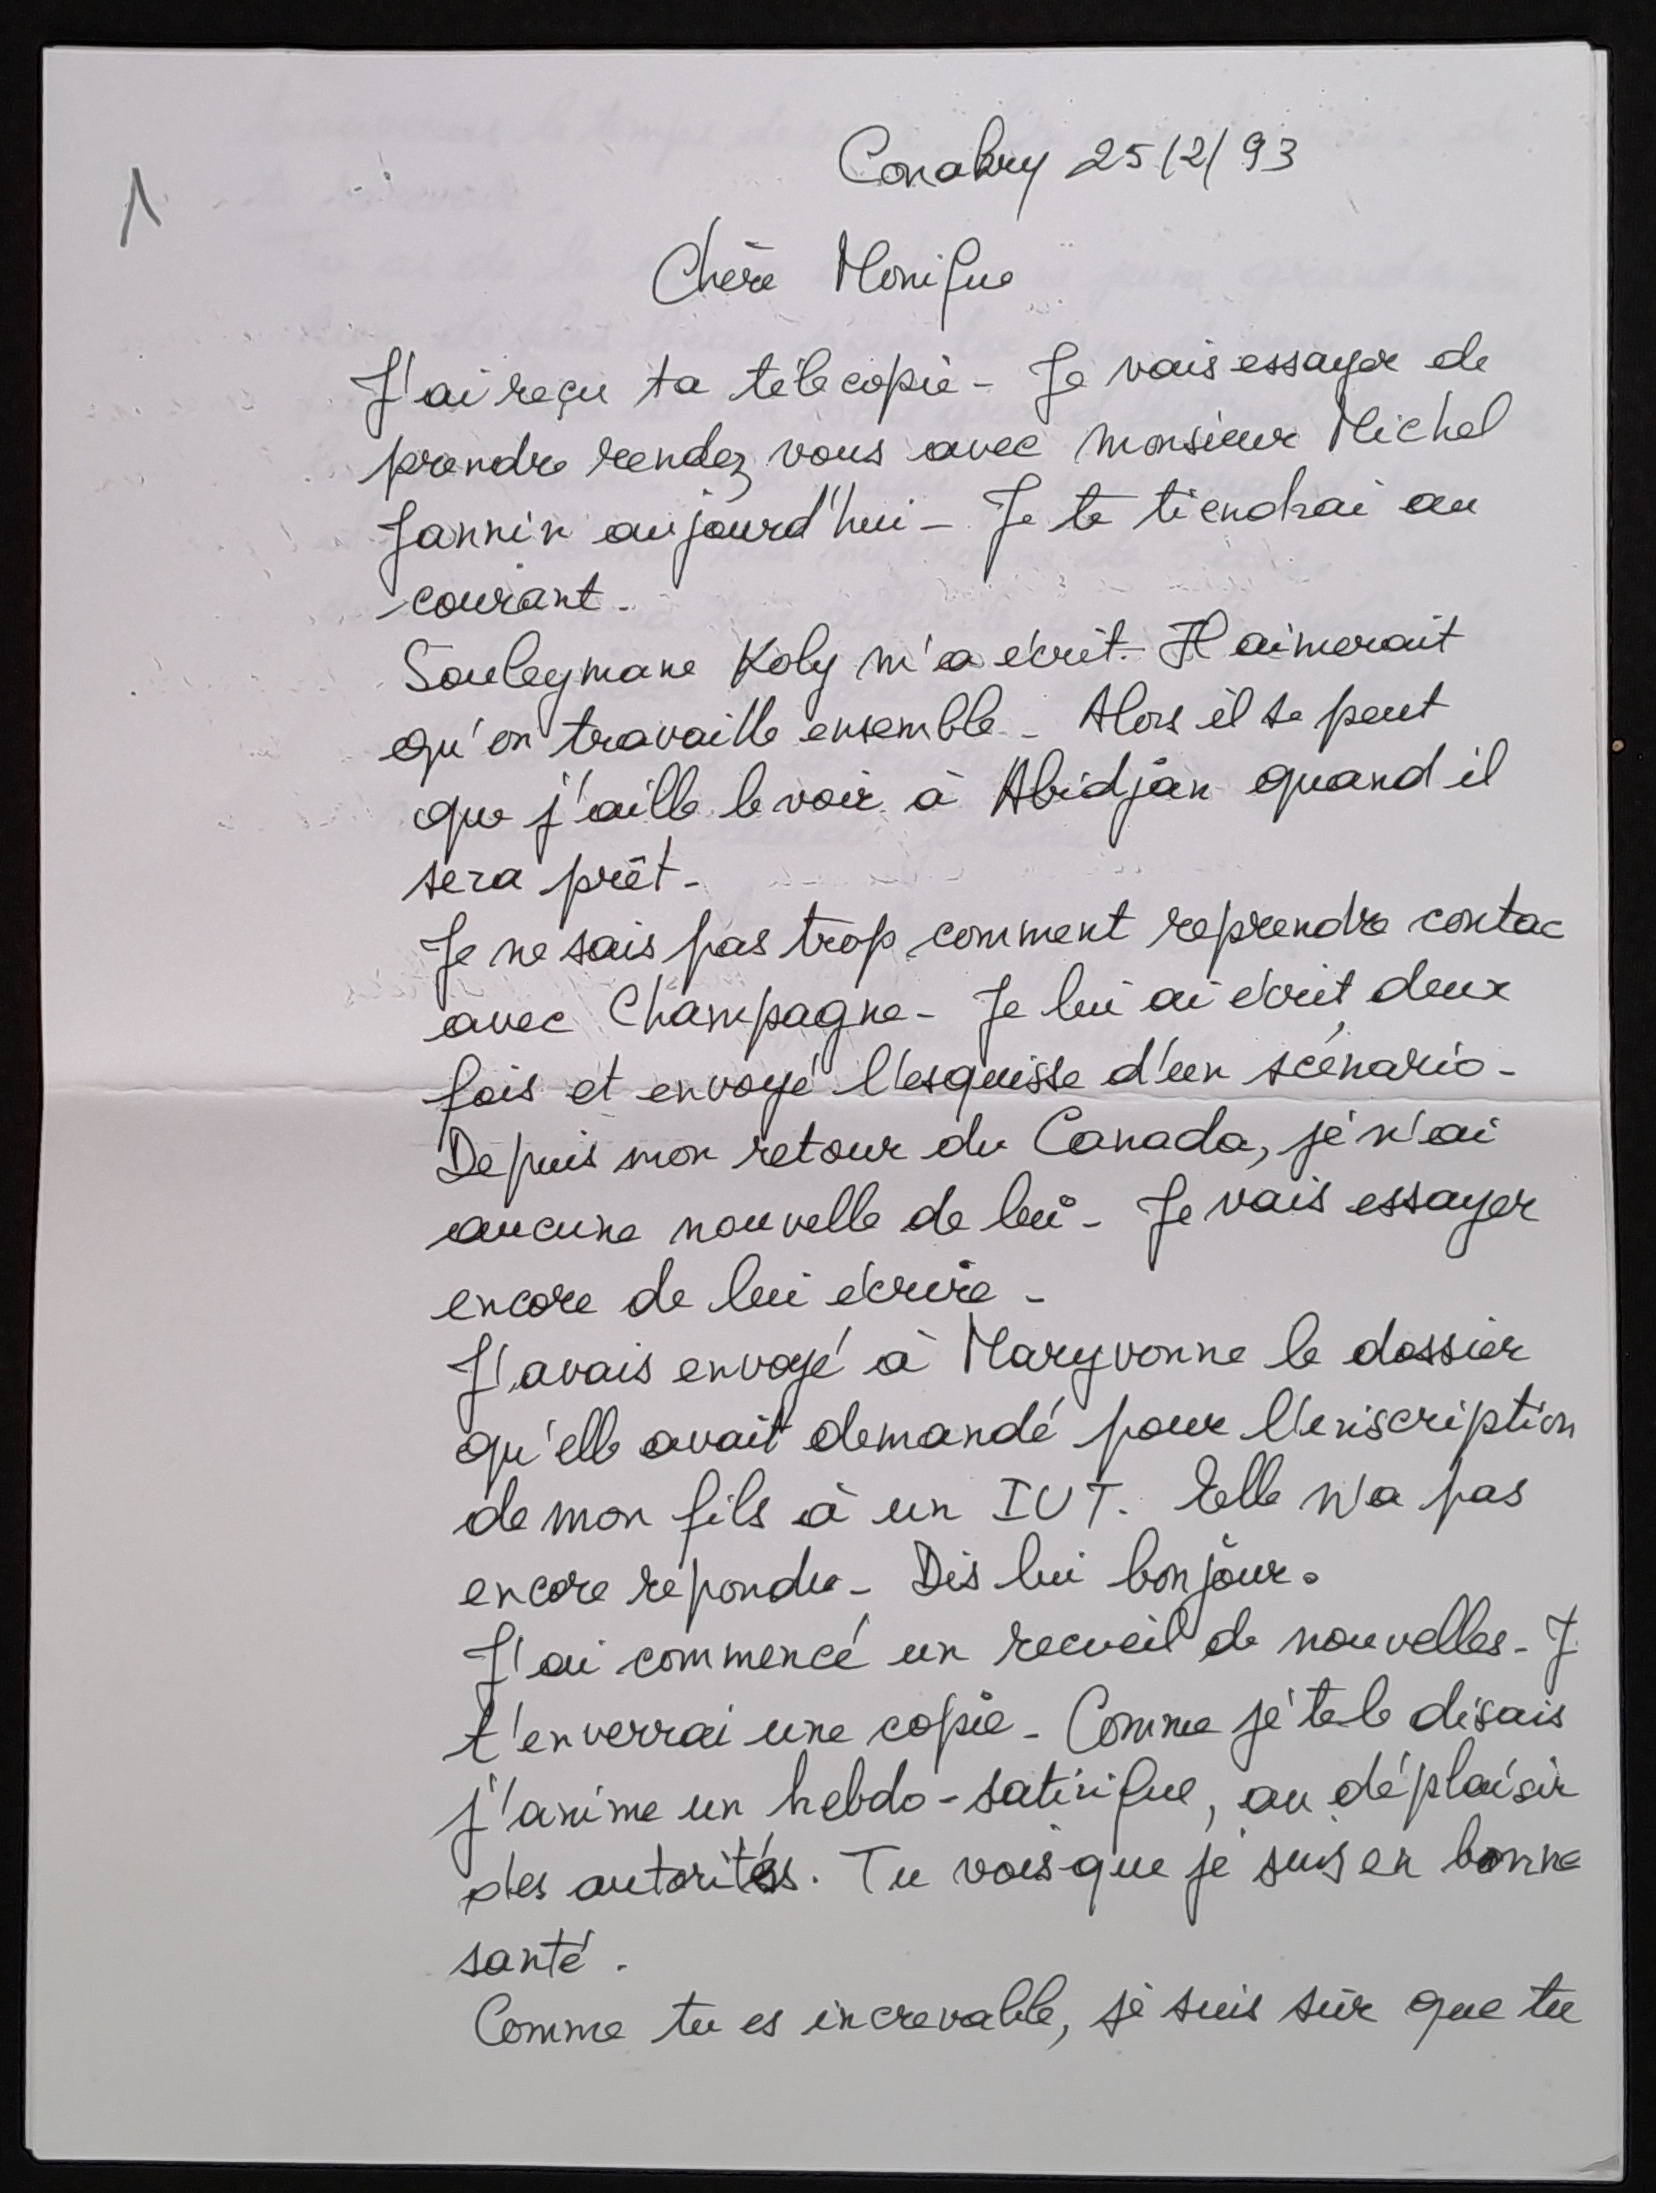 1
Conakry 25/2/93
Chère Monique
J'ai reçu ta télécopie - Je vais essayer de
prendre rendez vous avec monsieur Michel
Jannin aujourd'hui - Je te tiendrai au
courant -
Souleymane Koly m'a écrit - Il aimerait
qu'on travaille ensemble - Alors il se peut
que j'aille le voir à Abidjan quand il
sera prêt -
Je ne sais pas trop comment reprendre contac
avec Champagne - Je lui ai écrit deux
fois et envoyé l'esquisse d'un scénario -
Depuis mon retour du Canada, je n'ai
aucune nouvelle de lui - Je vais essayer
encore de lui écrire -
J'avais envoyé à Maryvonne le dossier
qu'elle avait demandé pour l'inscription
de mon fils à un IUT. Elle n'a pas
encore répondu - Dis lui bonjour.
J'ai commencé un recueil de nouvelles - J
t'enverrai une copie - Comme je te le disais
j'anime un hebdo-satirique, au déplaisir
des autorités. Tu vois que je suis en bonne
santé.
Comme tu es increvable, je suis sûr que tu